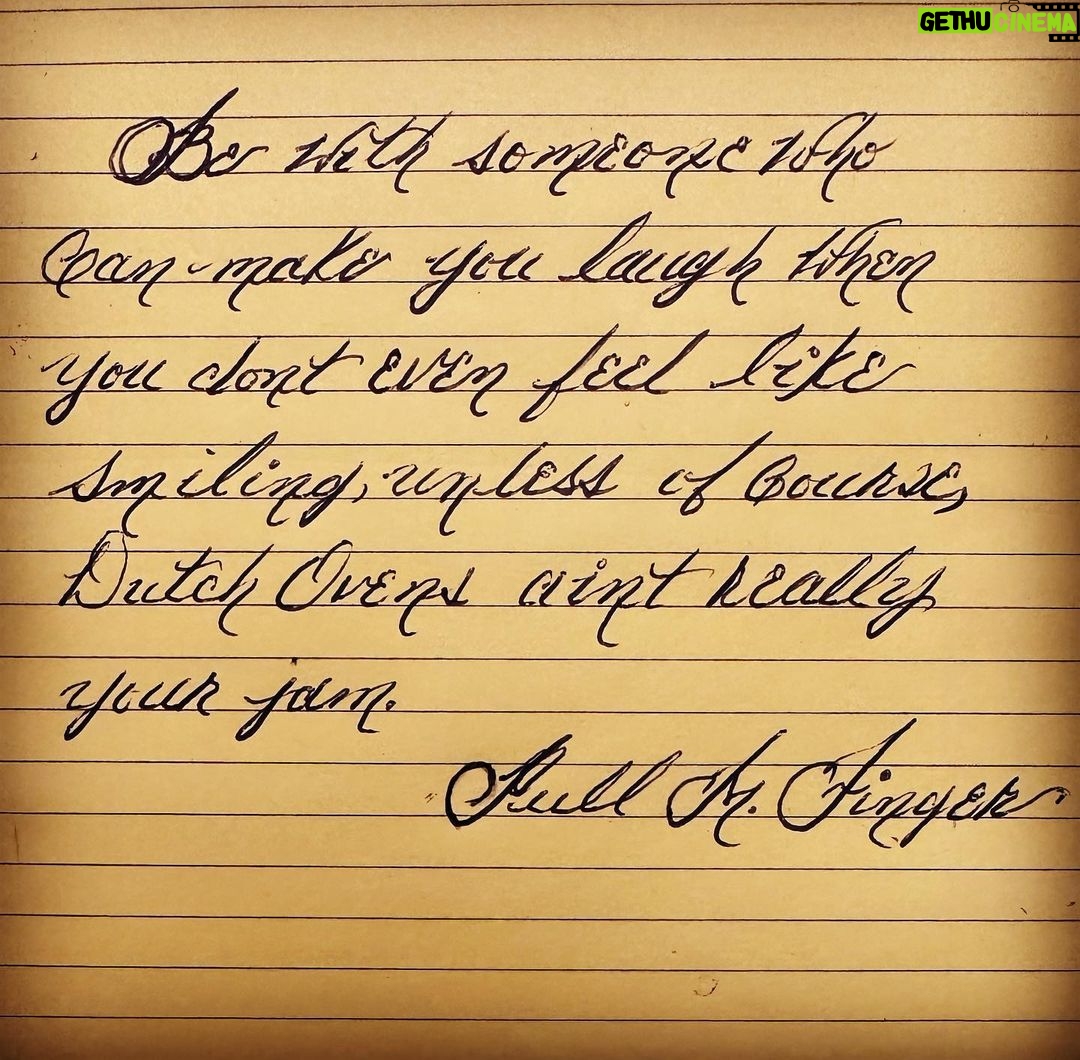 GETHUCINEMA
Be with someone who
Can make you laugh when
you dont even feel like
smiling, unless of Course,
Dutch Ovens aint really
your jam.
Pull M. Finger